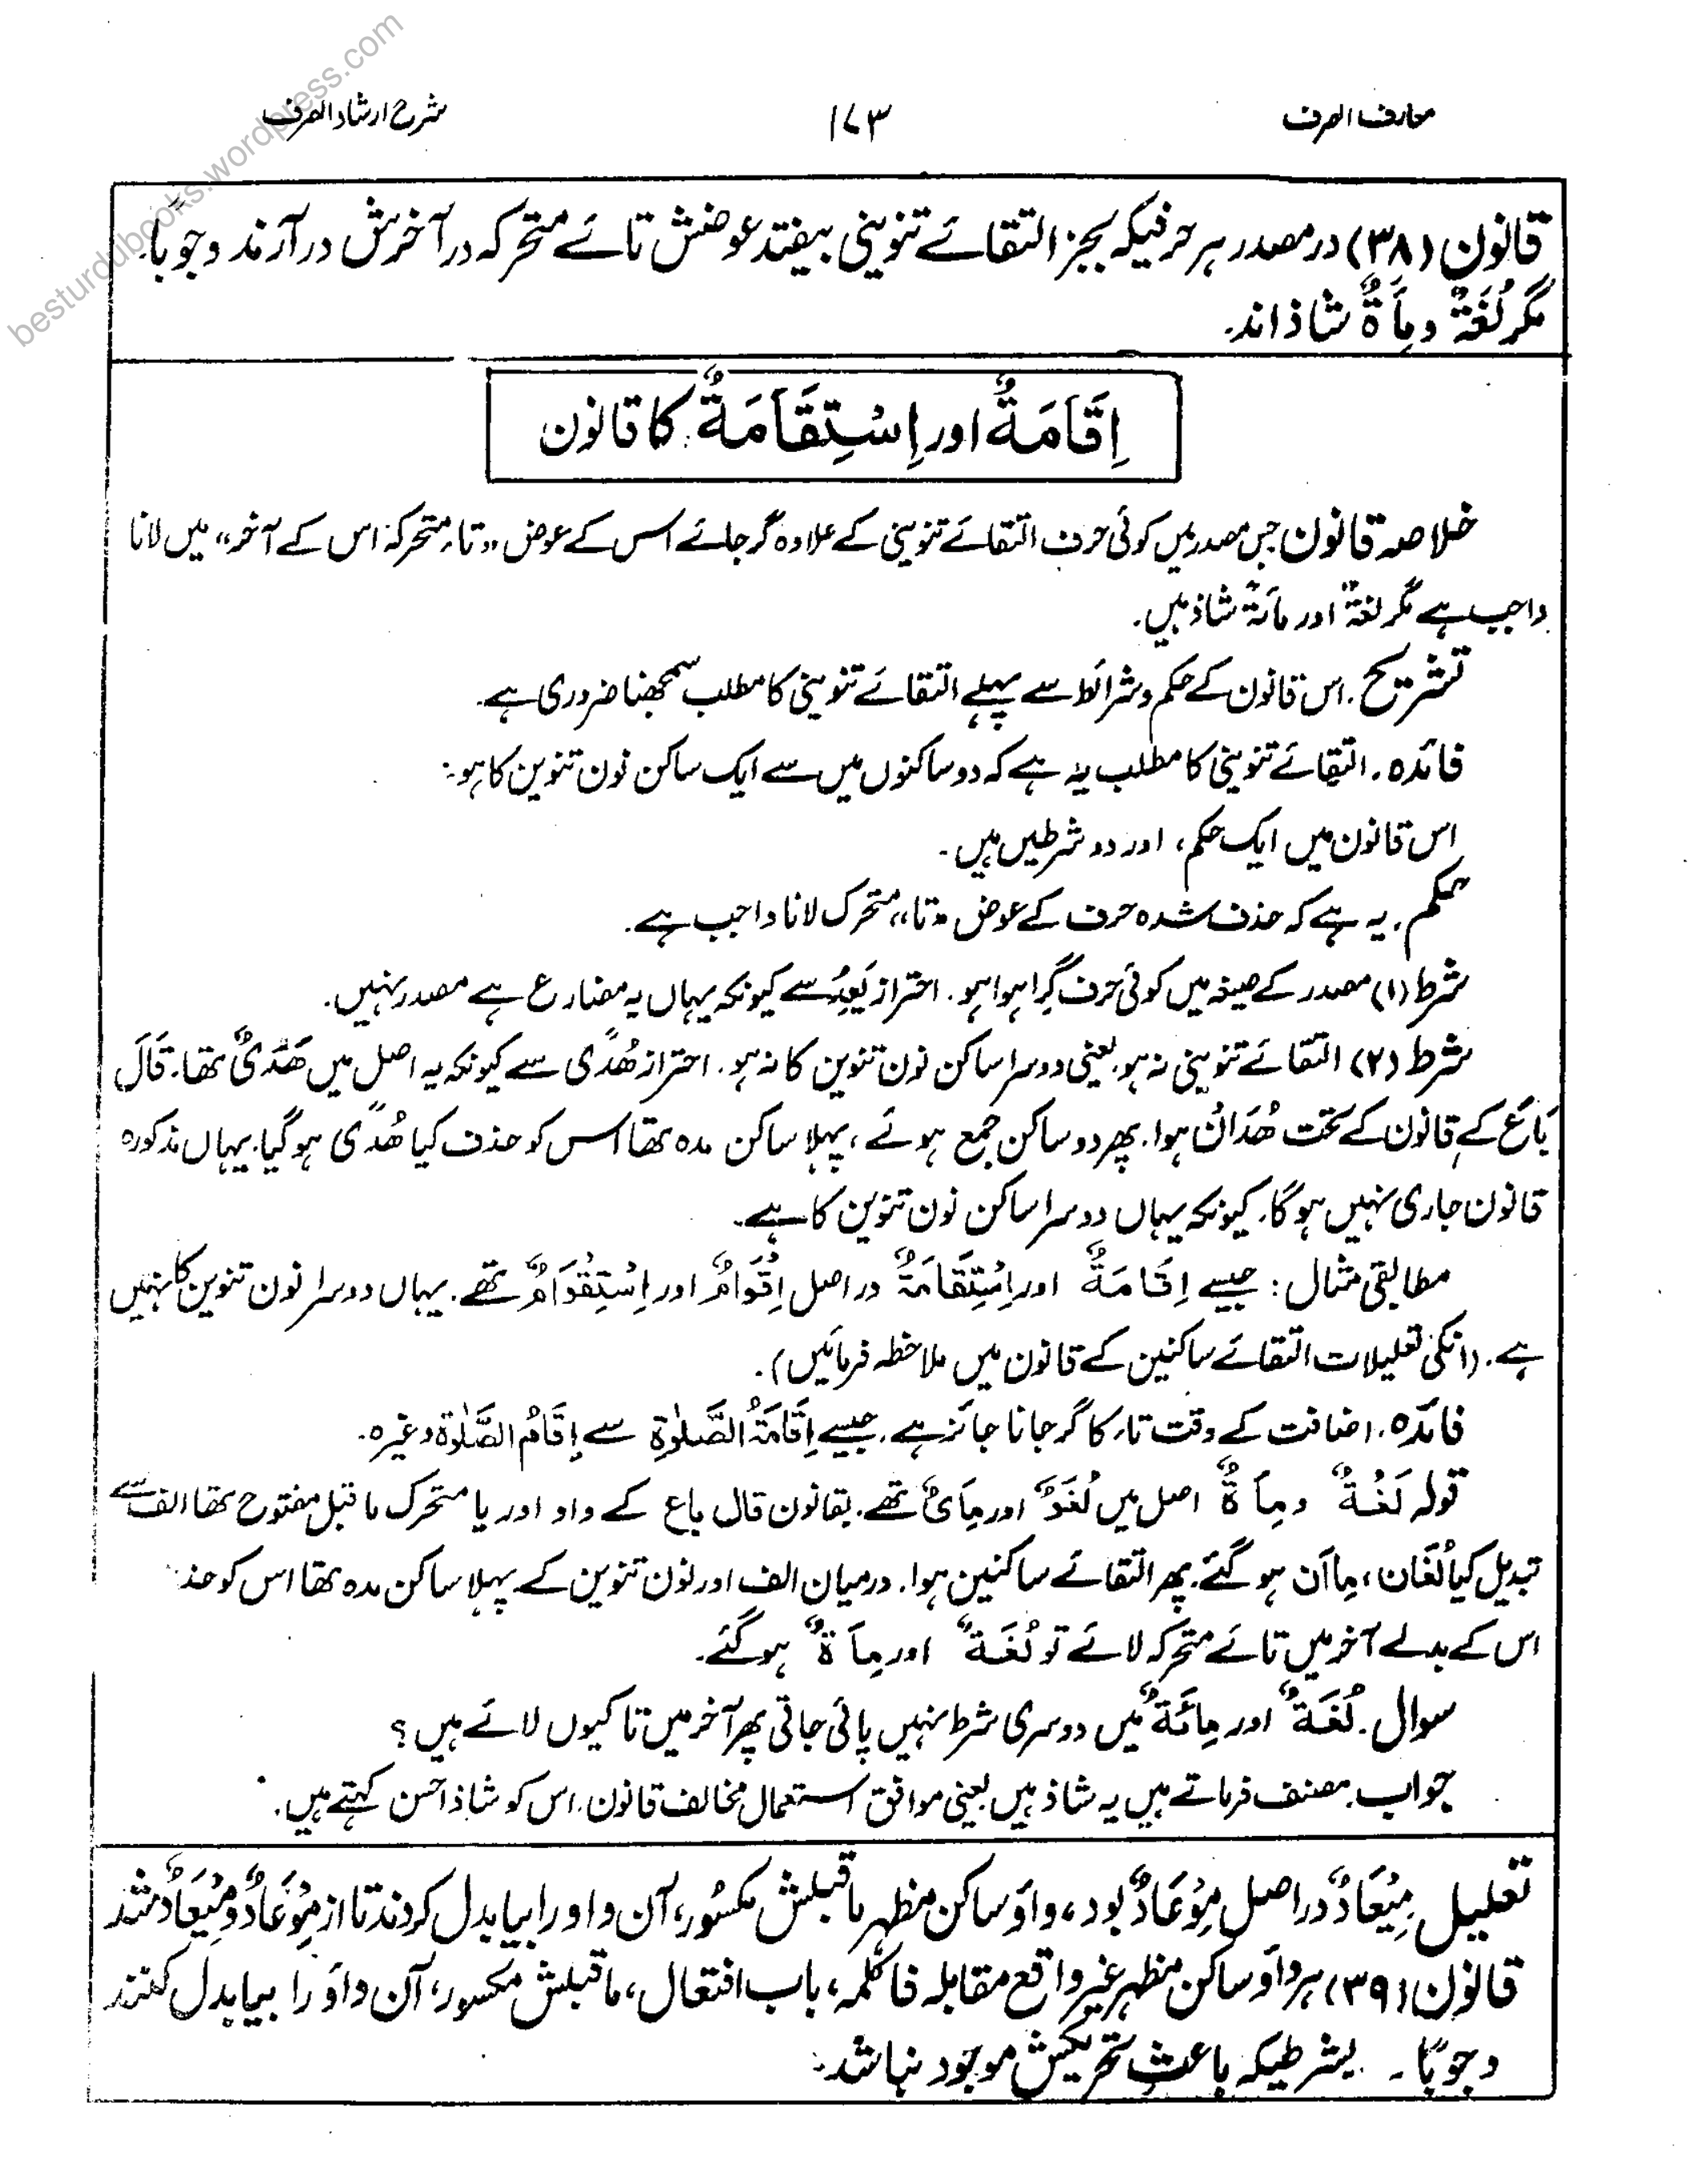 معارف الصرف
۱۷۳
شرح ارشاد الصرف
besturdubooks.wordpress.com
قانون (۳۸) در مصدر ہر حرفیکہ بجز التقائے تنوینی بیفتد عوضش تائے متحرکہ در آخرش در آرند وجوباً.
مگر لُغَةٌ و مِأَةٌ شاذ اند.
اِقَامَةٌ اور اِسْتِقَامَةٌ کا قانون
خلاصہ قانون جس مصدر میں کوئی حرف التقائے تنوینی کے علاوہ گر جائے اس کے عوض ”تاء متحرکہ اس کے آخر“ میں لانا
واجب ہے مگر لغۃٌ اور مأۃٌ شاذ ہیں.
تشریح. اس قانون کے حکم و شرائط سے پہلے التقائے تنوینی کا مطلب سمجھنا ضروری ہے.
فائدہ. التقائے تنوینی کا مطلب یہ ہے کہ دو ساکنوں میں سے ایک ساکن نون تنوین کا ہو.
اس قانون میں ایک حکم، اور دو شرطیں ہیں.
حکم. یہ ہے کہ حذف شدہ حرف کے عوض ”تا“ متحرک لانا واجب ہے.
شرط (۱) مصدر کے صیغہ میں کوئی حرف گرا ہوا ہو. احتراز یَعِدُ سے کیونکہ یہاں یہ مضارع ہے مصدر نہیں.
شرط (۲) التقائے تنوینی نہ ہو یعنی دوسرا ساکن نون تنوین کا نہ ہو. احتراز ھُدًی سے کیونکہ یہ اصل میں ھُدَیٌ تھا. قَالَ
بَاعَ کے قانون کے تحت ھُدَانْ ہوا. پھر دو ساکن جمع ہوئے، پہلا ساکن مدہ تھا اس کو حذف کیا ھُدًی ہو گیا. یہاں مذکورہ
قانون جاری نہیں ہو گا. کیونکہ یہاں دوسرا ساکن نون تنوین کا ہے.
مطابقی مثال: جیسے اِقَامَةٌ اور اِسْتِقَامَةٌ در اصل اِقْوَامٌ اور اِسْتِقْوَامٌ تھے. یہاں دوسرا نون تنوین کا نہیں
ہے. (انکی تعلیلات التقائے ساکنین کے قانون میں ملاحظہ فرمائیں).
فائدہ. اضافت کے وقت تاء کا گر جانا جائز ہے. جیسے اِقَامَةُ الصَّلٰوةِ سے اِقَامُ الصَّلٰوة وغیرہ.
قولہ لُغَةٌ و مِأَةٌ اصل میں لُغَوٌ اور مِأَیٌ تھے. بقانون قال باع کے واو اور یا متحرک ماقبل مفتوح تھا الف سے
تبدیل کیا لُغَان، مِاَان ہو گئے. پھر التقائے ساکنین ہوا. درمیان الف اور نون تنوین کے پہلا ساکن مدہ تھا اس کو حذ
اس کے بدلے آخر میں تائے متحرکہ لائے تو لُغَةٌ اور مِأَةٌ ہو گئے.
سوال. لُغَةٌ اور مِائَةٌ میں دوسری شرط نہیں پائی جاتی پھر آخر میں تا کیوں لائے ہیں؟
جواب. مصنف فرماتے ہیں یہ شاذ ہیں یعنی موافق استعمال مخالف قانون. اس کو شاذ احسن کہتے ہیں.
تعلیل مِیْعَادٌ در اصل مِوْعَادٌ بود، واؤ ساکن مظہر ماقبلش مکسور، آن واو را بیا بدل کردند تا از مِوْعَادٌ و مِیْعَادٌ شد
قانون (۳۹) ہر واؤ ساکن مظہر غیر واقع مقابلہ فا کلمہ، باب افتعال، ماقبلش مکسور، آن واؤ را بیا بدل کنند
وجوبًا. بشرطیکہ باعث تحریکش موجود نباشد.